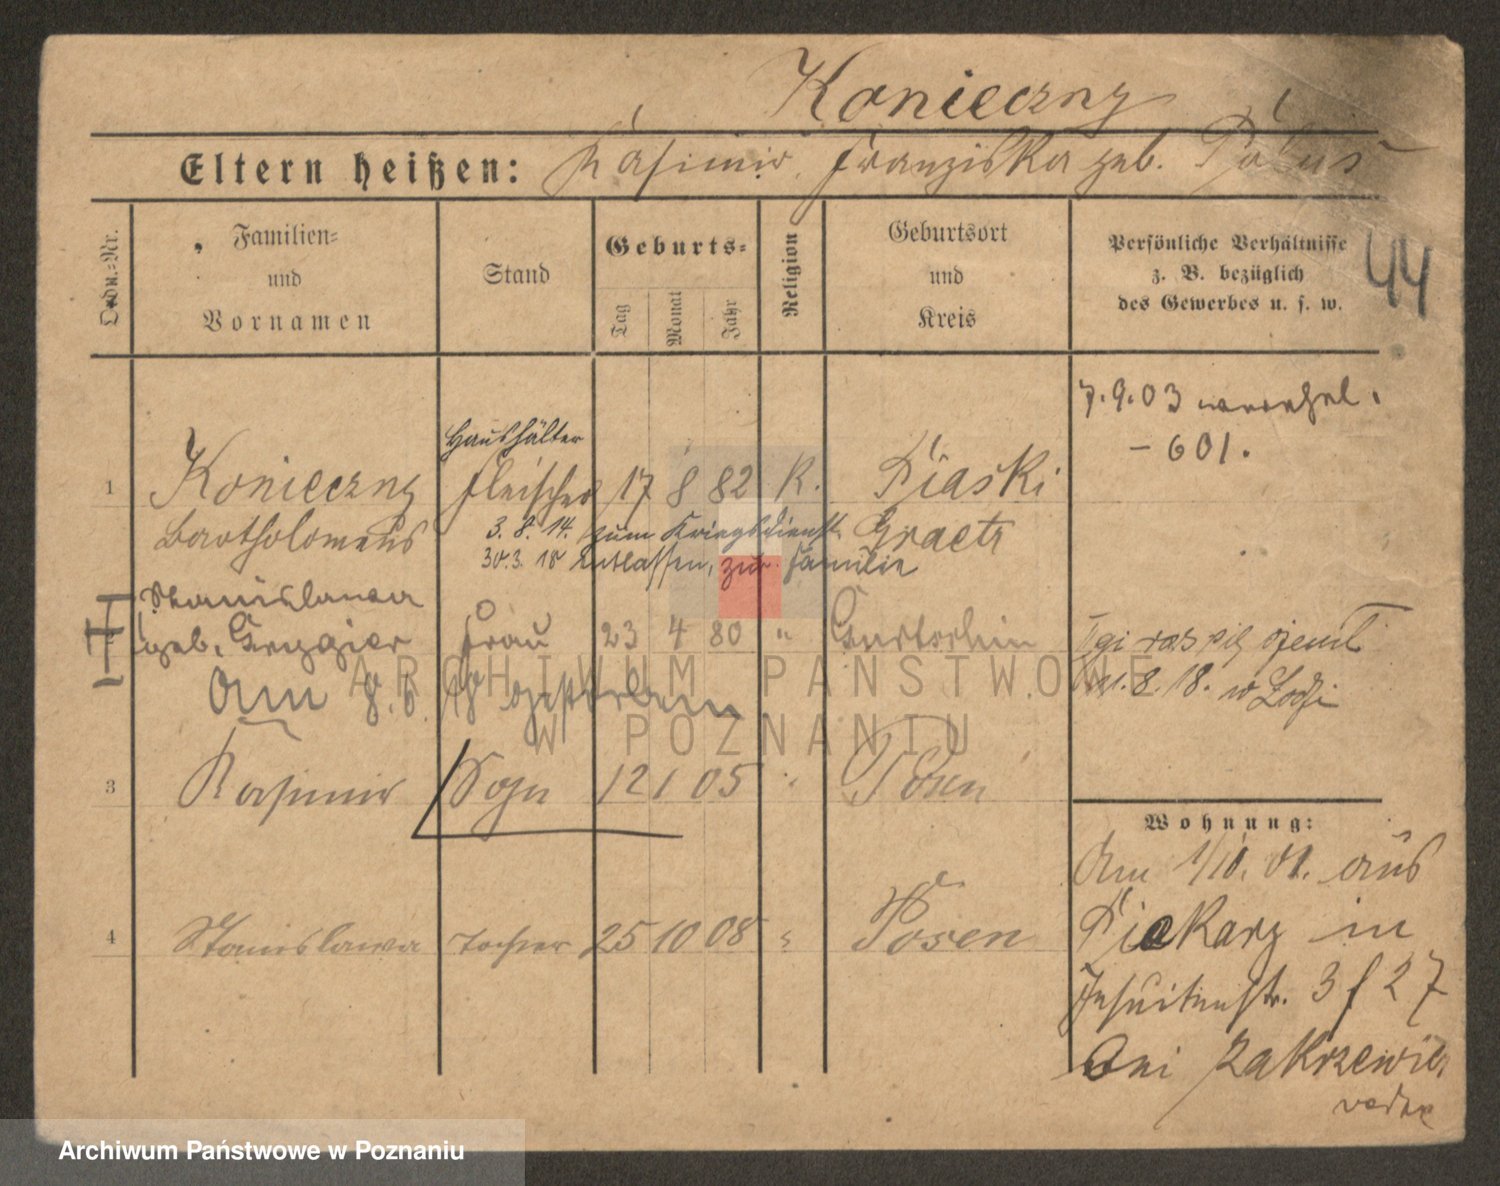 Konieczny
Eltern heißen: Kasimir, Franziska geb.
44
Ordn.-Nr.
Familien-
und
Vornamen
Stand
Geburts-
Tag
Monat
Jahr
Religion
Geburtsort
und
Kreis
Persönliche Verhältnisse
z. B. bezüglich
des Gewerbes u. s. w.
7.9.03
- 601.
Haushälter
1 Konieczny Fleischer 17 8 82 K. Piaski
Bartholomeus 3.8.14. zum Kriegsdienst Graetz
30.3.18 entlassen, zur Familie
Stanislawa
geb. Frau 23 4 80 "
II gi raz się ożenił
Am 8.6.18 gestorben
11.8.18. w Łodzi
3 Kasimir Sohn 12 1 05 " Posen
Wohnung:
Am 1/10. 01. aus
4 Stanislawa Tochter 25 10 08 " Posen
Piekary in
Jesuitenstr. 3 f 27
bei Zakrzewicz
ARCHIWUM PAŃSTWOWE
W POZNANIU
Archiwum Państwowe w Poznaniu